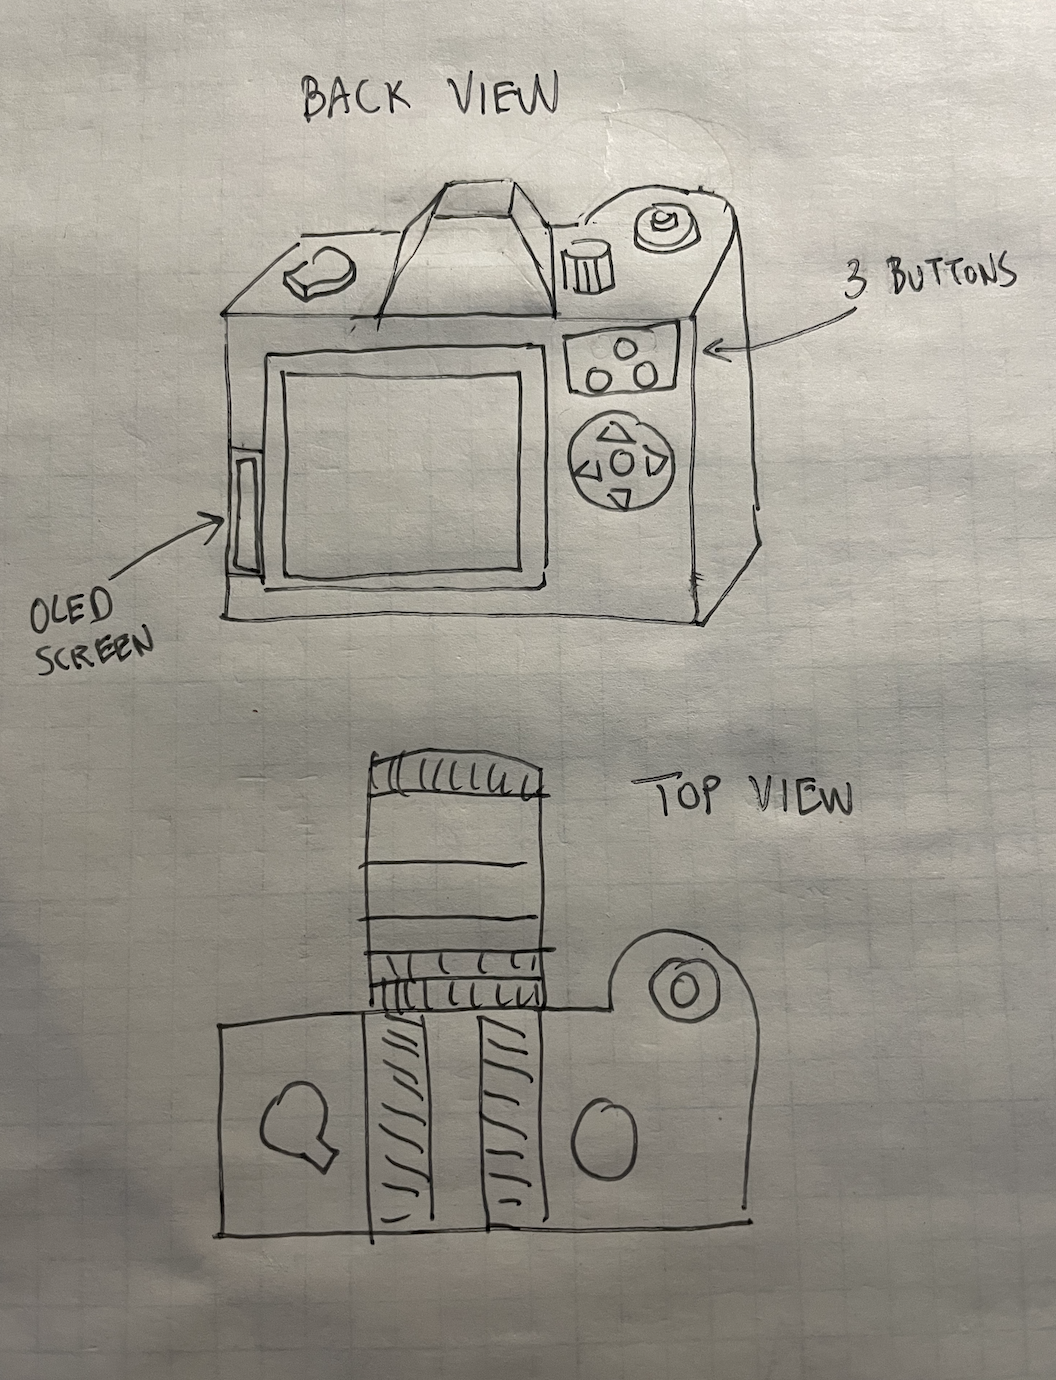 BACK VIEW
3 BUTTONS
OLED
SCREEN
TOP VIEW